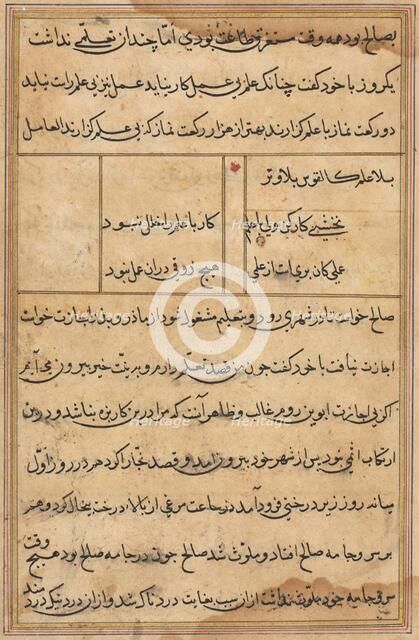 بصالح بود همه وقت مستغرق طاعت بودی اما چندان علمی نداشت
یکروز با خود گفت چنانک علم بی عمل کار نیاید عمل نیز بی علم راست نیاید
دو رکعت نماز با علم گزارند بهتر از هزار رکعت نماز که بی علم گزارند العامل
بلا علم کالقوس بلا وتر
نخشبی کار کن ولی با علم کار با علم را خلل نبود
عملی کان بری است از علم هیچ ذوقی در آن عمل نبود
صالح خواست تا در شهری رود و بتعلیم مشغول شود از مادر و پدر اجازت خواست
اجازت نیافت با خود گفت چون من قصد تعلم دارم و بر نیت خیر بیرون می آیم
اگر بی اجازت ابوین روم غالب و ظاهر آنست که مرا درین کار بزه نباشد و درین
ارتکاب اثمی نبود پس از شهر خود بیرون آمد و قصد بخارا کرد هم در روز اول
میانه روز زیر درختی فرود آمد در ساعت مرغی از بالاء درخت پیخال کرد و هم
بر سر و جامه صالح افتاد و ملوث شد صالح چون در جامه صالح بود هیچ وقت
سر و جامه خود ملوث نداشت از آن سبب بغایت دردناک شد و از آن درد نیک دردمند
heritage
heritage